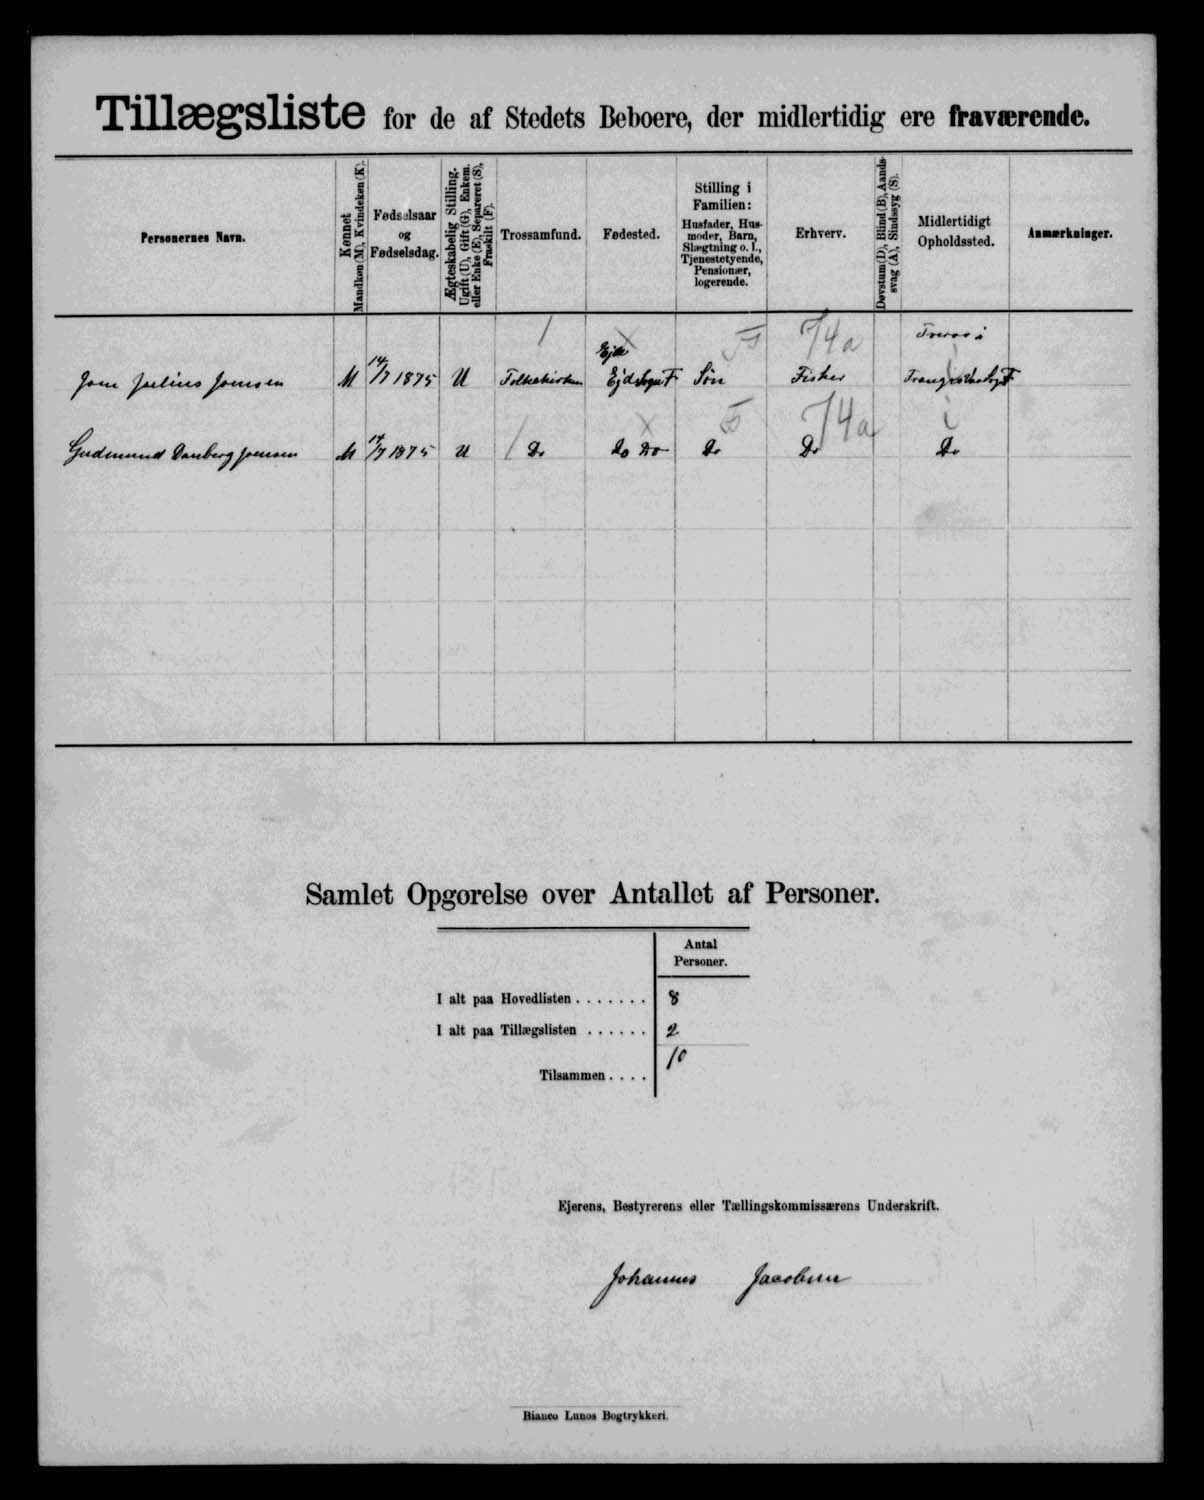 Tillægsliste for de af Stedets Beboere, der midlertidig ere fraværende.
Personernes Navn.
Kønnet
Mandkøn (M), Kvindekøn (K).
Fødselsaar
og
Fødselsdag.
Ægteskabelig Stilling.
Ugift (U), Gift (G), Enkem.
eller Enke (E), Separeret (S),
Fraskilt (F).
Trossamfund.
Fødested.
Stilling i
Familien:
Husfader, Hus-
moder, Barn,
Slægtning o. l.,
Tjenestetyende,
Pensionær,
logerende.
Erhverv.
Døvstum (D), Blind (B), Aands-
svag (A), Sindssyg (S).
Midlertidigt
Opholdssted.
Anmærkninger.
Julius Joensen M 14/7 1875 U Folkekirken Ejde Sogn F Søn Fisker 74a
Gudmund Danberg Joensen M 14/7 1875 U Do Do Do Do Do 74a Do
Samlet Opgørelse over Antallet af Personer.
Antal
Personer.
I alt paa Hovedlisten . . . . . . . 8
I alt paa Tillægslisten . . . . . . 2
Tilsammen . . . . 10
Ejerens, Bestyrerens eller Tællingskommissærens Underskrift.
Johannes Jacobsen
Bianco Lunos Bogtrykkeri.